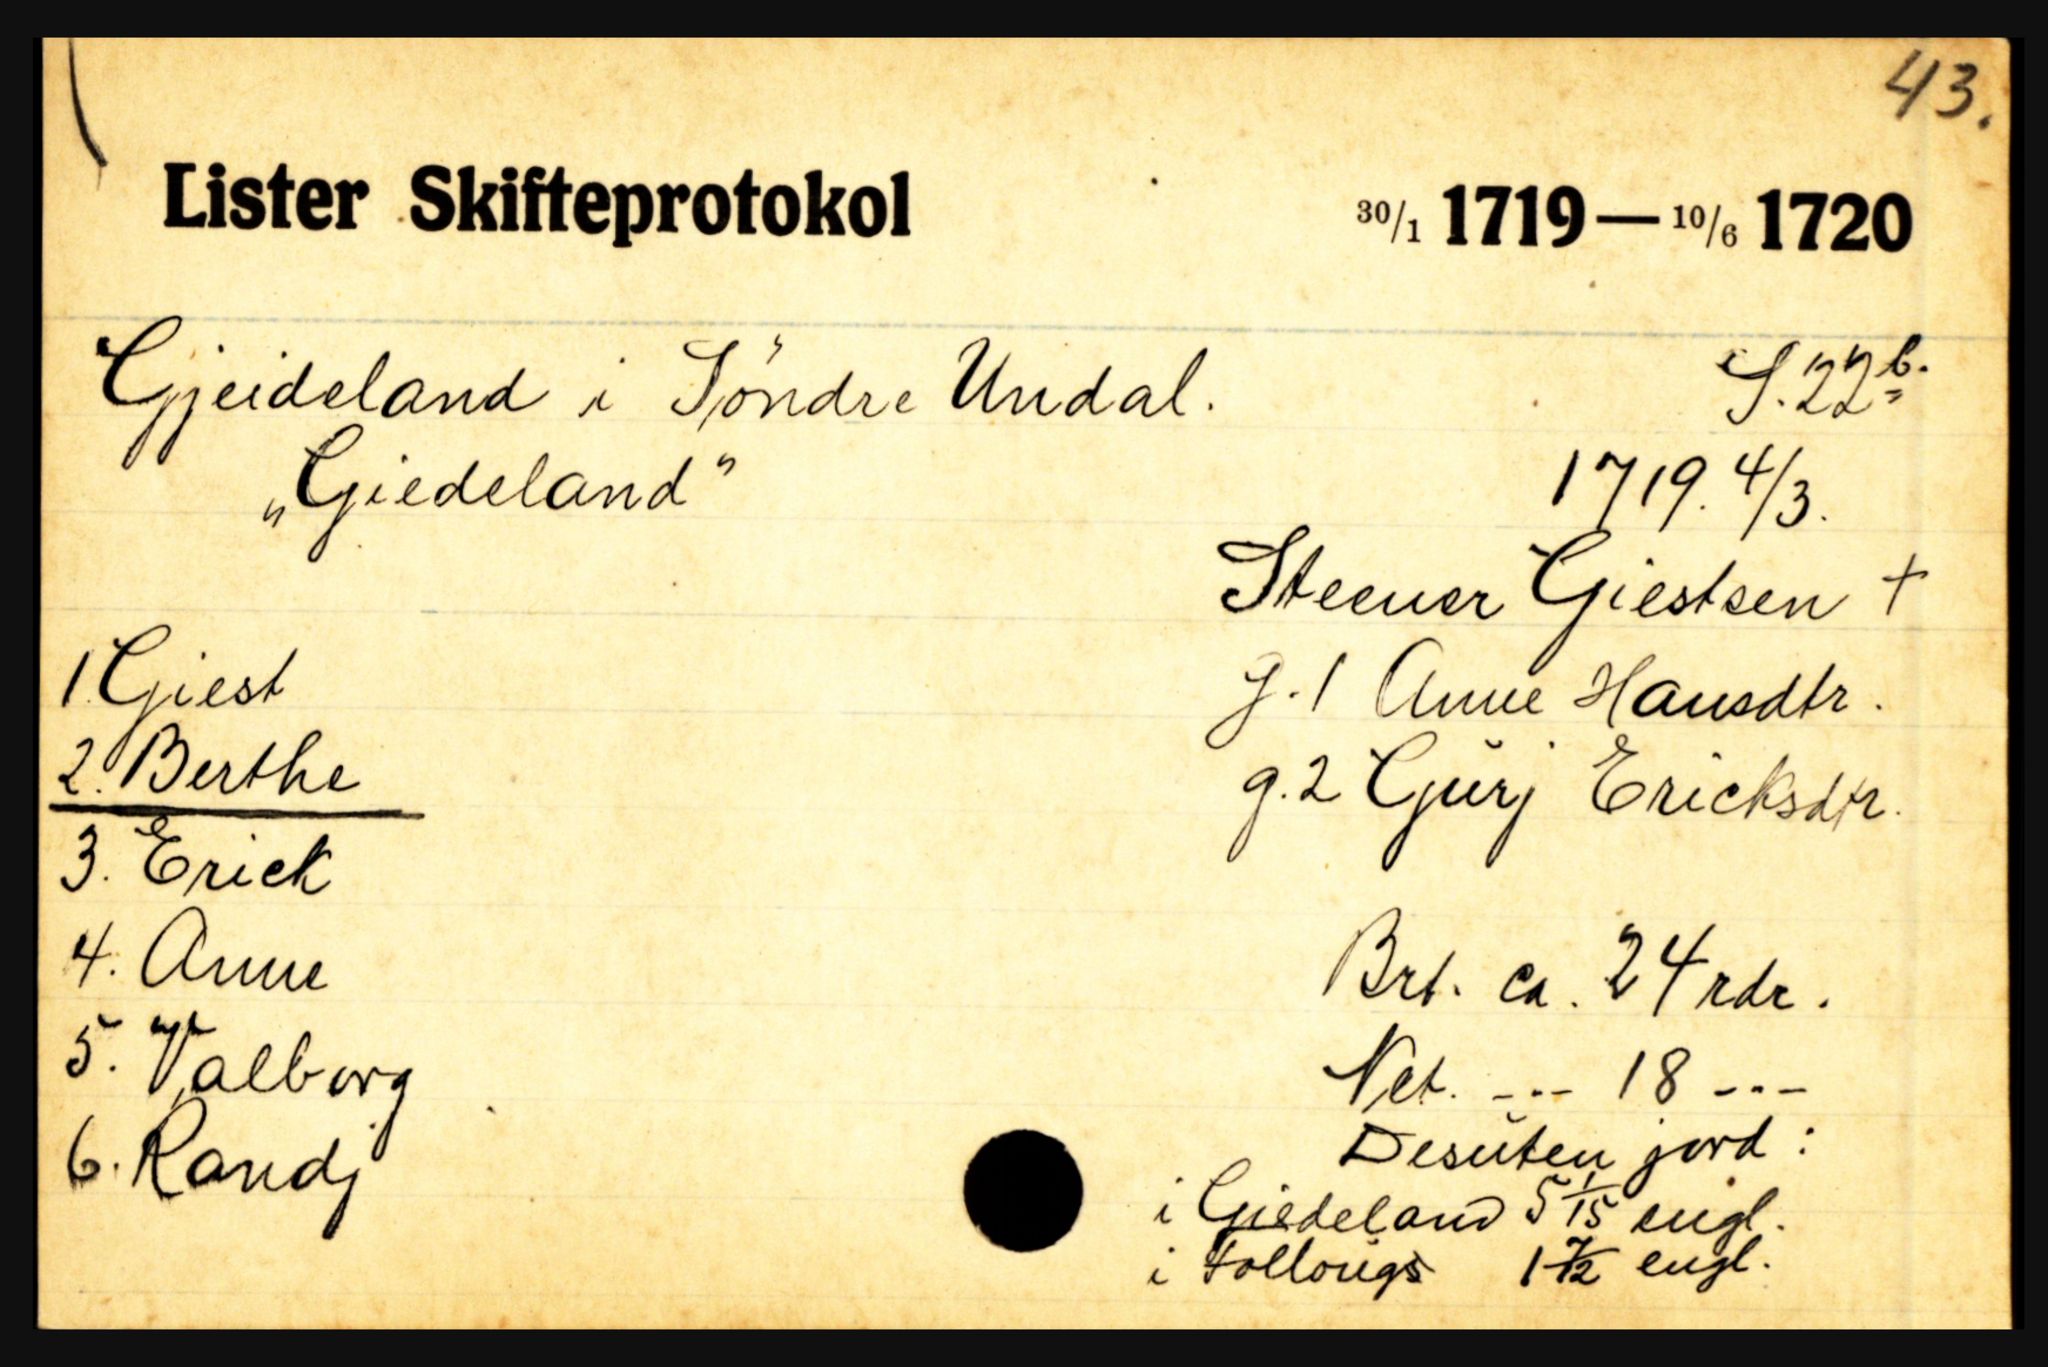 43.
Lister Skifteprotokol 30/1 1719 — 10/6 1720
Gjeideland i Söndre Undal. S. 22b.
„Giedeland” 1719. 4/3.
Steener Giestsen +
1. Giest g. 1 Anne Hansdtr.
2. Berthe g. 2 Gŭrj Ericksdtr.
3. Erick
4. Anne Brt. ca. 24 rdr.
5. Valborg Net. --- 18 ---
6. Randj Desŭten jord:
i Giedeland 5 1/15 engl.
i 1 7/12 engl.